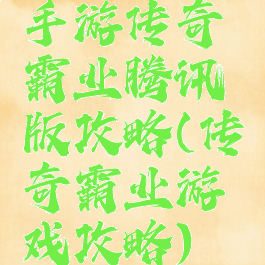 手游传奇
霸业腾讯
版攻略(传
奇霸业游
戏攻略)